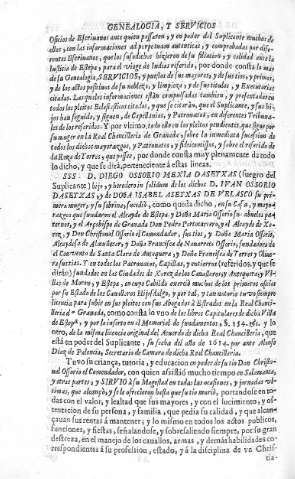 GENEALOGIA, Y SERVICIOS
Oficios de Escrivanos ante quien passaron, y en poder del Suplicante muchos de
ellos, con las informaciones ad perpetuam autenticas, y comprobadas por dife-
rentes Escrivanos, que los susodichos hizieron de su filiacion, y calidad ante la
Justicia de Estepa, para el de Indias referido, por donde consta lo mas
de su Genealogia, SERVICIOS, y puestos de sus mayores, y de sus tios, y primos,
y de los actos positivos de su nobleza, y limpieza, y de sus titulos, y Executorias
citadas. Las quales informaciones estan compulsadas tambien, y presentadas en
todos los pleitos Eclesiasticos citados, y que se citaràn, que el Suplicante, y sus hi-
jos han seguido, y siguen, de Capellanias, y Patronatos, en diferentes Tribuna-
les de los referidos. Y por ultimo, todo ello en los pleitos pendientes que sigue por
su muger en la Real Chancilleria de Granada, sobre la immediata sucession de
todos los dichos mayorazgos, y Patronatos, y fideicomisos, y sobre el referido de
la Roxa de Torres, que possee, por donde consta muy plenamente de todo
lo dicho, y que se dirà, perteneciente à estas lineas.
SSS D. DIEGO OSSORIO MEXIA DASETXAS (suegro del
Suplicante) hijo, y heredero in solidum de los dichos D. IVAN OSSORIO
DASETXAS, y de DOÑA ISABEL ASETXAS DE VELASCO su pri-
mera muger, y su sobrina, sucediò, como queda dicho, en su Casa, y mayo-
razgos que fundaron el Alcayde de Estepa, y Doña Maria Ossorio sus abuelos pa-
ternos, y el Arzobispo de Granada Don Pedro Portocarrero, y el Alcayde de Xe-
rez, y Don Christoval Ossorio el Comendador, sus tios, y Doña Maria Ossorio,
y Doña Francisca de Navarrete Ossorio, fundadora de
el Convento de Santa Clara de Antequera, y Doña Francisca de Torres y
Y en todos los Patronatos, Capillas, y entierros (referidos, y que se
diràn) fundados en las Ciudades de Xerez de los Cavalleros, y Antequera, y Vi-
llas de Moron, y Estepa, en cuyo Cabildo exerciò muchos de los primeros oficios
por su Estado de los Cavalleros Hijosdalgo, y por tal, y tan notorio tuvo siempre
licencia para subir en sus pleitos con sus Abogados à Estrados en la Real Chanci-
lleria de Granada, como consta lo uno de los libros Capitulares de dicha Villa
de Estepa, y por lo inserto en el Memorial de fundamentos, §. 154. &c. y lo
otro, de la misma licencia original del Acuerdo de dicha Real Chancilleria, que
està en poder del Suplicante, su fecha del año de 1654. por ante Alonso
Diez de Palencia, Secretario de Camara de dicha Real Chancilleria.
Tuvo su crianza, tutoria, y educacion en poder de su tio Don Christo-
val Ossorio el Comendador, con quien assistiò mucho tiempo en Salamanca,
y otras partes, y SIRVIÒ à su Magestad en todas las ocasiones, y jornadas vo-
luntarias, que alcançò, y se le ofrecieron hasta que su tio murió, portandose en to-
das con el valor, y lealtad que sus mayores, y con el lucimiento, y os-
tentacion de su persona, y familia, que pedia su calidad, y que alcan-
çavan sus rentas à mantener, y lo mismo en todos los actos publicos,
funciones, y fiestas, señalandose, y sobresaliendo siempre, por su gran
destreza, en el manejo de los cavallos, armas, y demàs habilidades co-
rrespondientes à su profession, estado, y à la disciplina de un Chris-
tia-